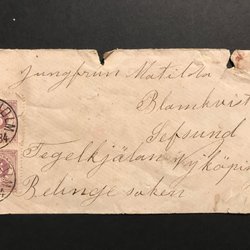 Jungfrun Matilda
Blomkvist
Sefsund
Tegelkjälan Nyköpin
Relinge soken